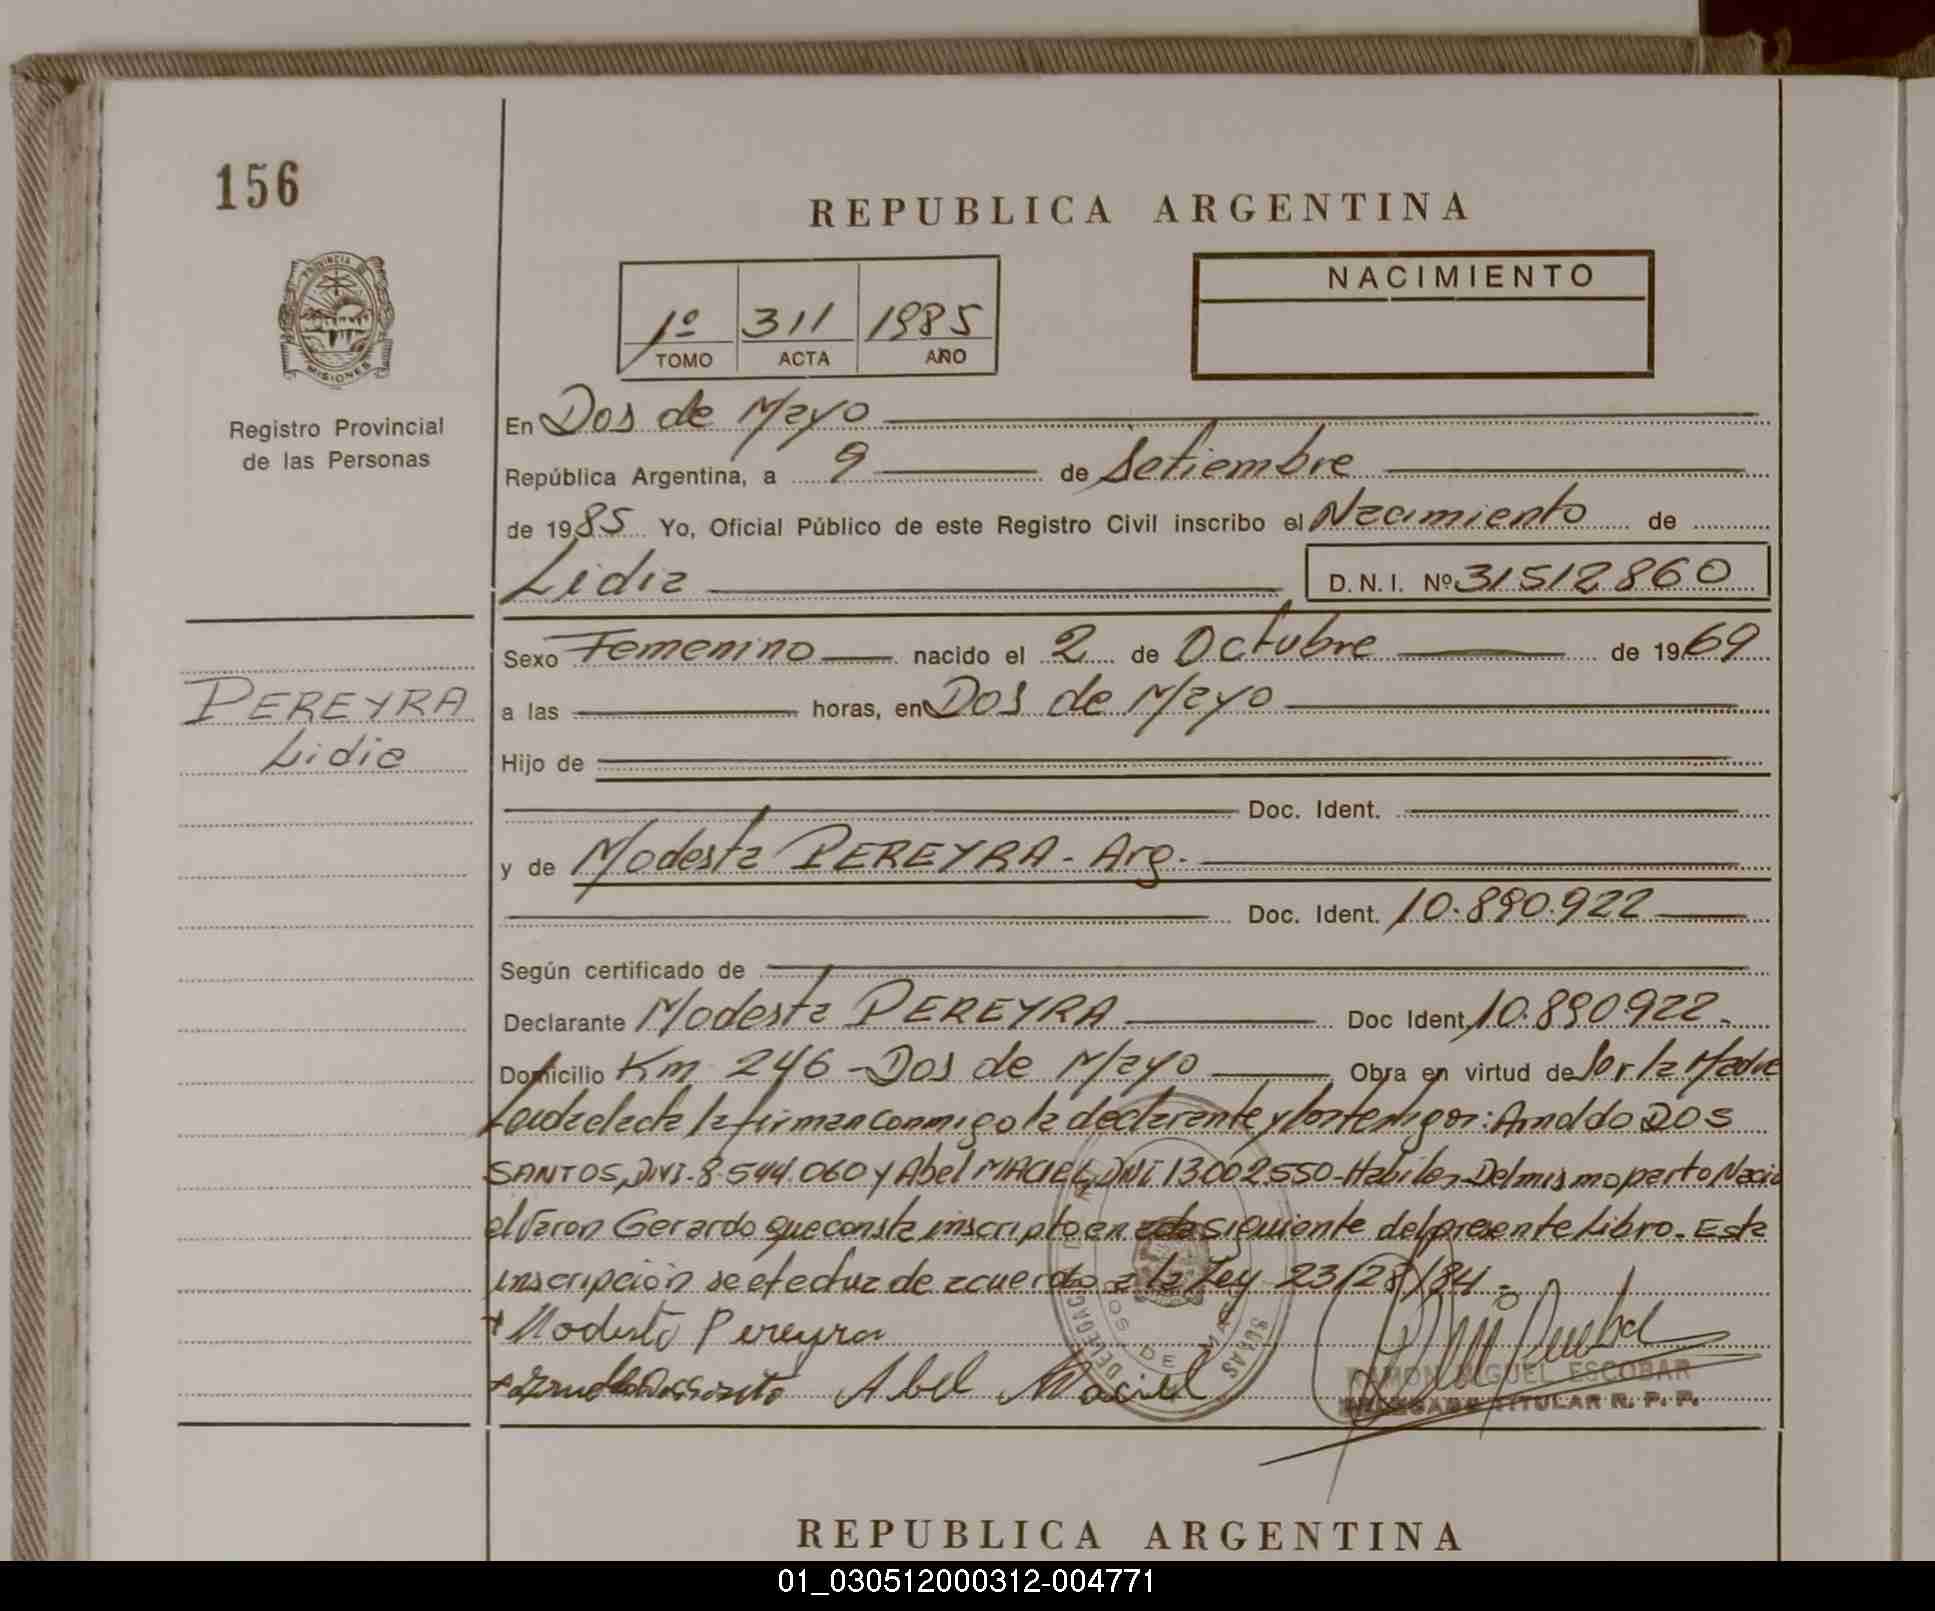 156
REPUBLICA ARGENTINA
PROVINCIA DE
MISIONES
1º 311 1985
TOMO ACTA AÑO
NACIMIENTO
Registro Provincial
de las Personas
En Dos de Mayo
República Argentina, a 9 de Setiembre
de 1985 Yo, Oficial Público de este Registro Civil inscribo el Nacimiento de
Lidia D.N.I. Nº 31512860
Sexo Femenino nacido el 2 de Octubre de 1969
PEREYRA
Lidia
a las horas, en Dos de Mayo
Hijo de
Doc. Ident.
y de Modesta PEREYRA - Arg.
Doc. Ident. 10.890.922
Según certificado de
Declarante Modesta PEREYRA Doc Ident. 10.890922.
Domicilio Km 246 - Dos de Mayo Obra en virtud de Ser la Madre
Leida el acta la firman conmigo la declarante y los testigos: Arnoldo DOS
SANTOS, DNI. 8.544.060 y Abel MACIEL, DNI 13002550 - Habiles - Del mismo parto Nacio
el Varon Gerardo que consta inscripto en acta siguiente del presente Libro. Esta
inscripción se efectua de acuerdo a la Ley 23/28/84.-
+ Modesta Pereyra
Abel Maciel
DELEGAC DOS DE MAYO
RAMON MIGUEL ESCOBAR
DELEGADO TITULAR R. P. P.
REPUBLICA ARGENTINA
01_030512000312-004771